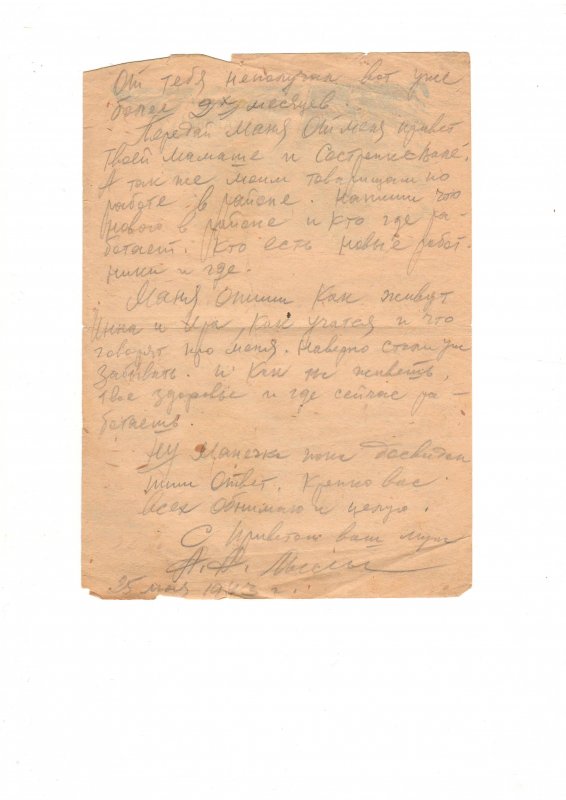 От тебя неполучал вот уже
более 9х месяцев.
Передай Маня От меня привет
твоей мамаше и Сестренке Вале.
А так же моим товарищам по
работе в районе. Напиши что
нового в районе и кто где ра-
ботает. Кто есть новые работ-
ники и где.
Маня Опиши Как живут
Инна и Ира, Как учатся и что
говорят про меня. Наверно стали уже
Забывать. и Как ты живешь,
твое здоровье и где сейчас ра-
ботаешь
НУ Манечка пока досвидан
пиши Ответ. Крепко вас
всех Обнимаю и целую.
С Приветом ваш муж
А.
25 мая 194 г.